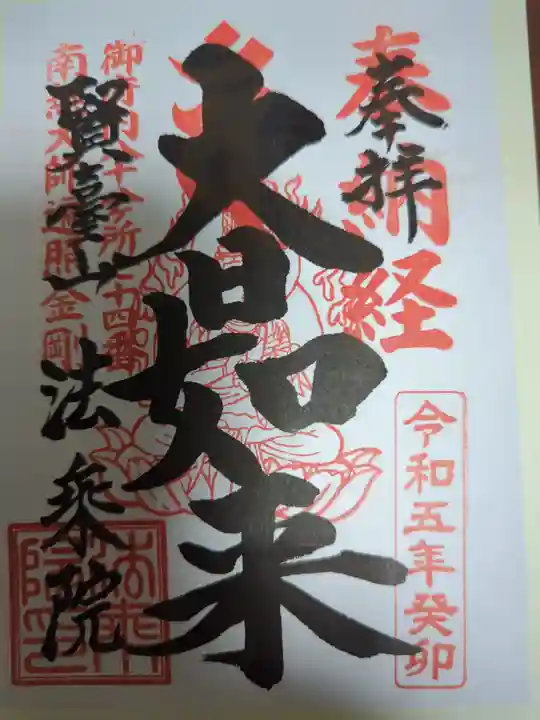 奉納経
奉拝
令和五年癸卯
大日如来
御府内八十八ヶ所
南無大師遍照金剛
賢臺山
法乗院